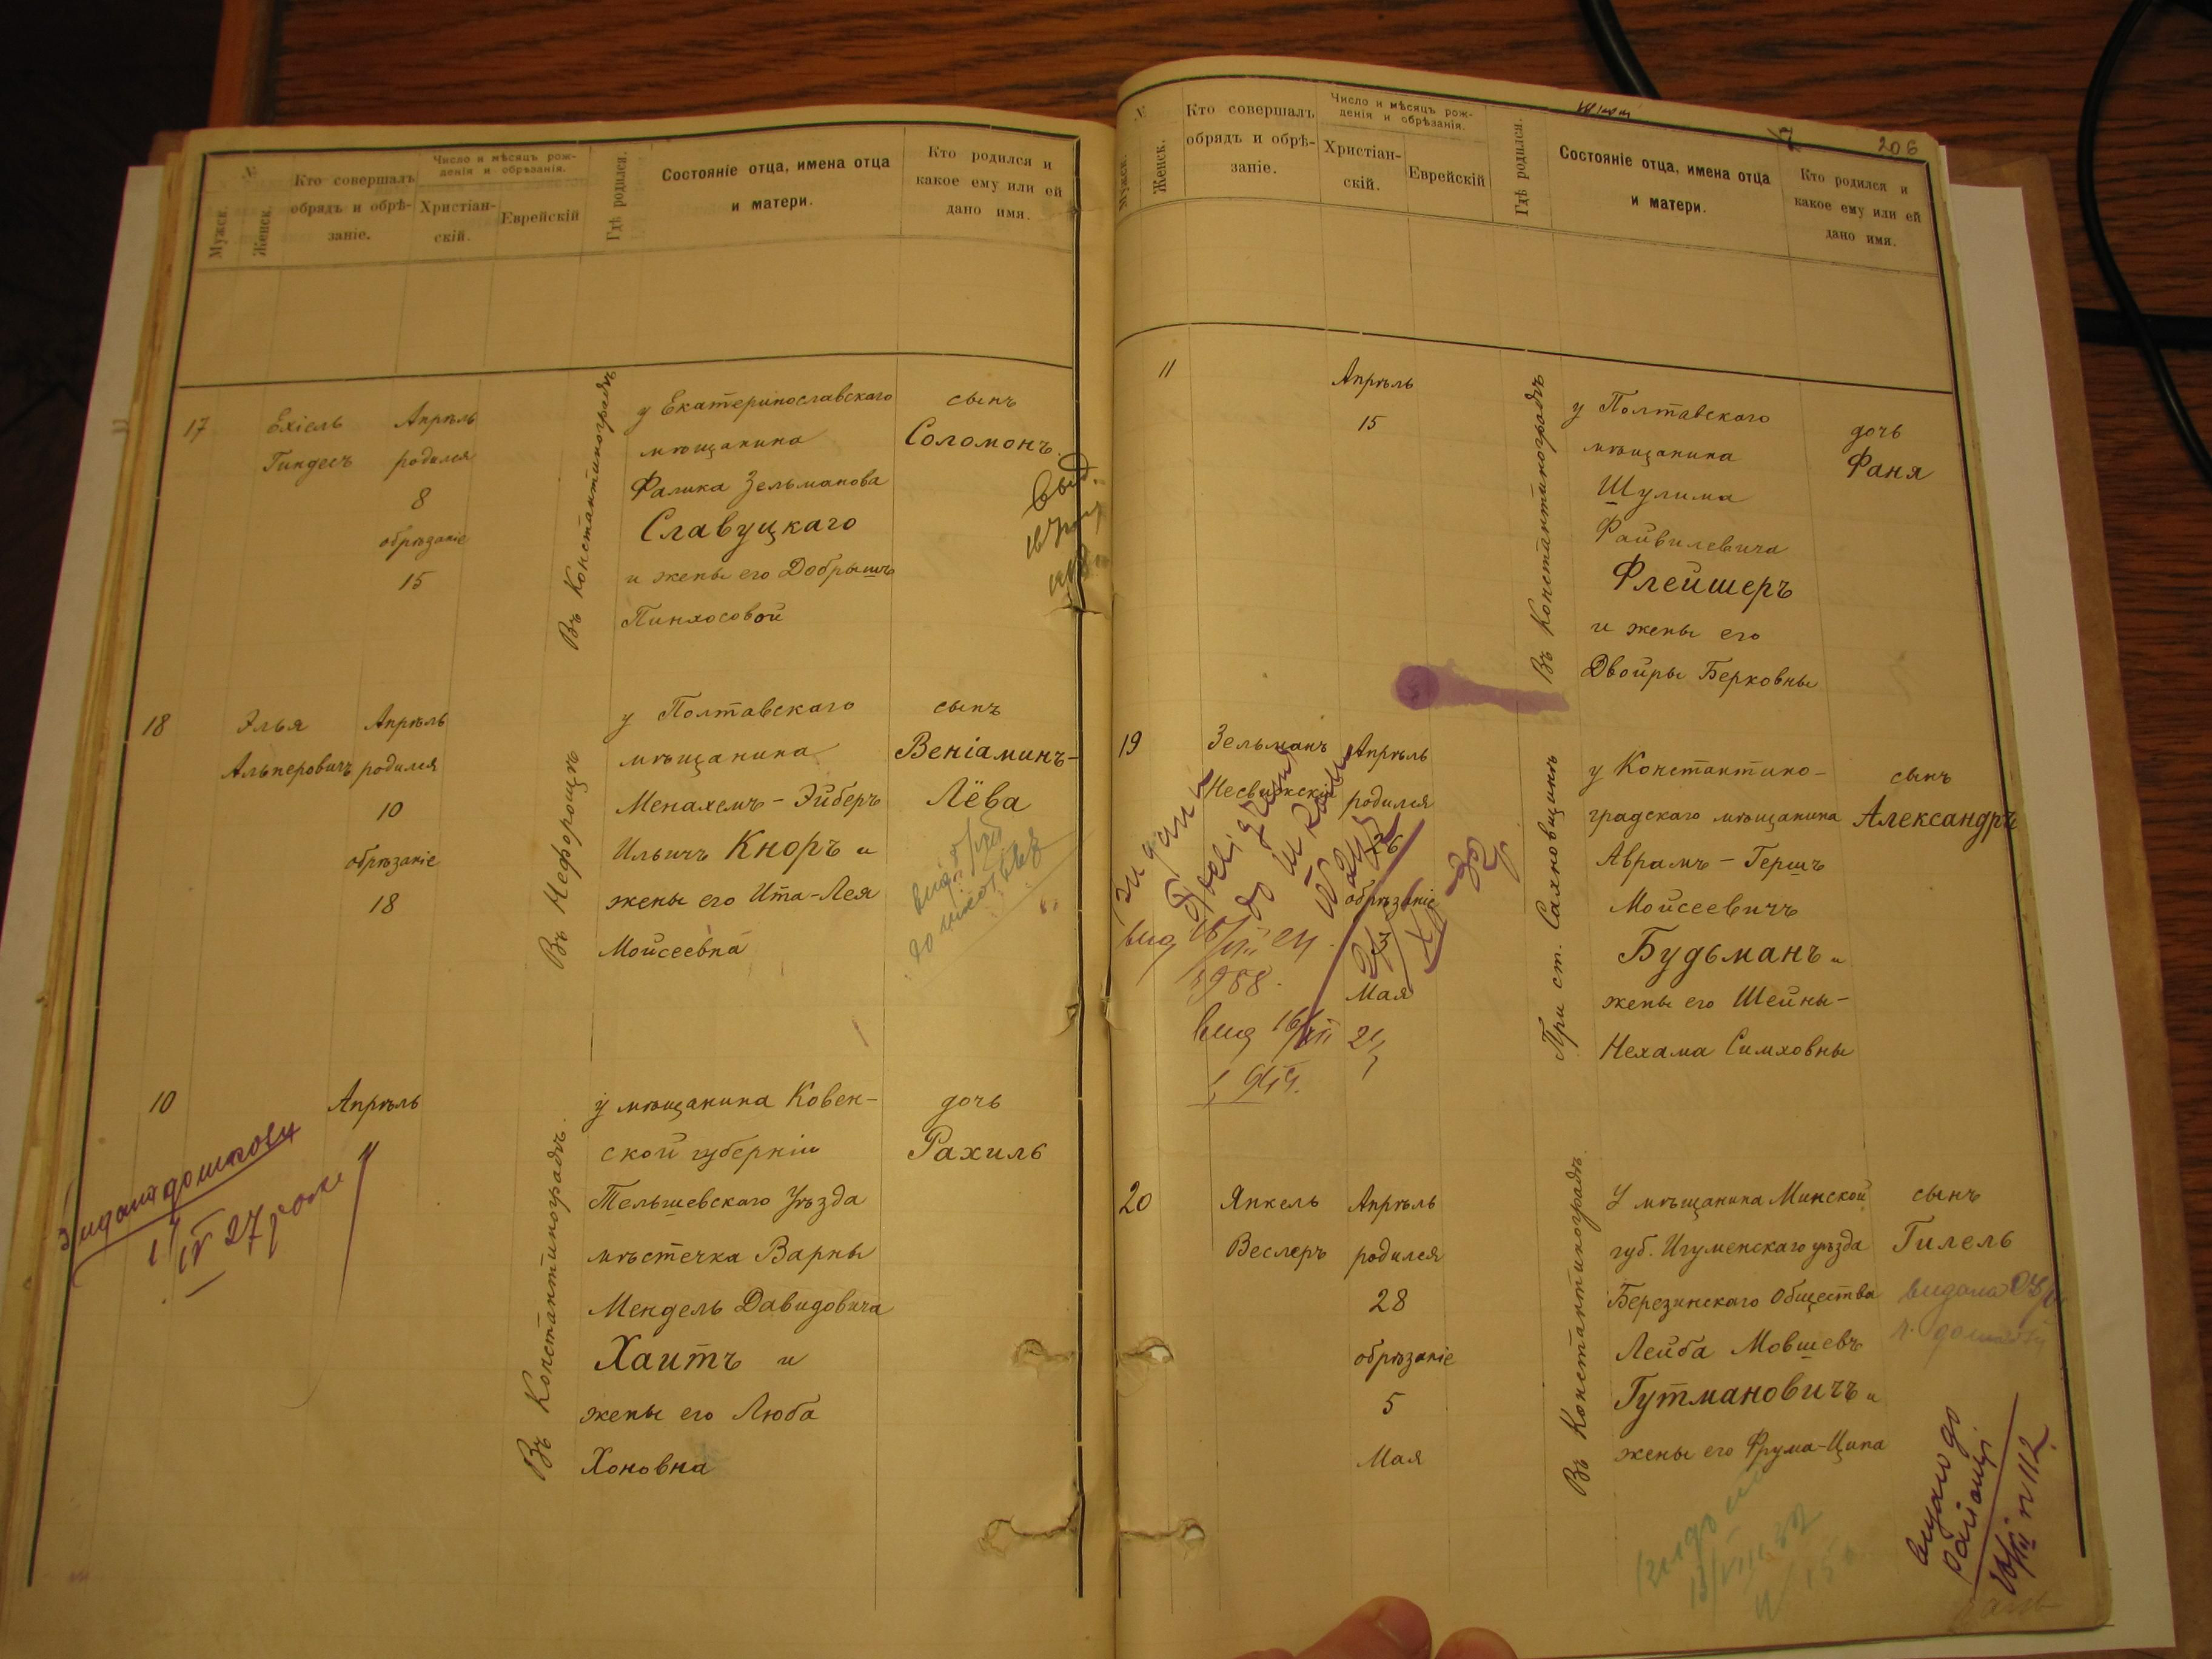 №
Мужск.
Женск.
Кто совершалъ
обрядъ и обрѣ-
заніе.
Число и мѣсяцъ рож-
денія и обрѣзанія.
Христіан-
скій.
Еврейскій
Гдѣ родился.
Состояніе отца, имена отца
и матери.
Кто родился и
какое ему или ей
дано имя.
17
Ехіель
Гиндесъ
Апрѣль
родился
8
обрѣзаніе
15
Въ Константиноградѣ
у Екатеринославскаго
мѣщанина
Фалика Зельманова
Славуцкаго
и жены его Добрышъ
Пинхосовой
сынъ
Соломонъ.
18
Элья
Альперовичъ
Апрѣль
родился
10
обрѣзаніе
18
Въ Нефорощѣ
у Полтавскаго
мѣщанина
Менахемъ-Эйберъ
Ильичъ Кноръ и
жены его Ита-Лея
Мойсеевна
сынъ
Веніаминъ-
Лёва
10
Апрѣль
11
Въ Константиноградѣ.
у мѣщанина Ковен-
ской губерніи
Тельшевскаго Уѣзда
мѣстечка Варны
Мендель Давидовича
Хаитъ и
жены его Люба
Хоновна
дочь
Рахиль
206
№
Мужск.
Женск.
Кто совершалъ
обрядъ и обрѣ-
заніе.
Число и мѣсяцъ рож-
денія и обрѣзанія.
Христіан-
скій.
Еврейскій
Гдѣ родился.
Состояніе отца, имена отца
и матери.
Кто родился и
какое ему или ей
дано имя.
11
Апрѣль
15
Въ Константиноградѣ
у Полтавскаго
мѣщанина
Шулима
Файвилевича
Флейшеръ
и жены его
Двойры Берковны
дочь
Фаня
19
Зельманъ
Несвижскій
Апрѣль
родился
26
обрѣзаніе
3
Мая
При ст. Сахновщинѣ
у Константино-
градскаго мѣщанина
Аврамъ-Гершъ
Мойсеевичъ
Будьманъ и
жены его Шейны-
Нехама Симховны
сынъ
Александръ
20
Янкель
Веслеръ
Апрѣль
родился
28
обрѣзаніе
5
Мая
Въ Константиноградѣ
У мѣщанина Минской
губ. Игуменскаго уѣзда
Березинскаго Общества
Лейба Мовшевъ
Гутмановичъ и
жены его Фрума-Ципа
сынъ
Гилель